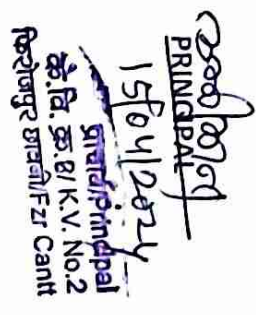 PRINCIPAL
15/04/2024
प्राचार्य/Principal
के.वि. क्र.2/K.V. No.2
फिरोजपुर छावनी/Fzr Cantt